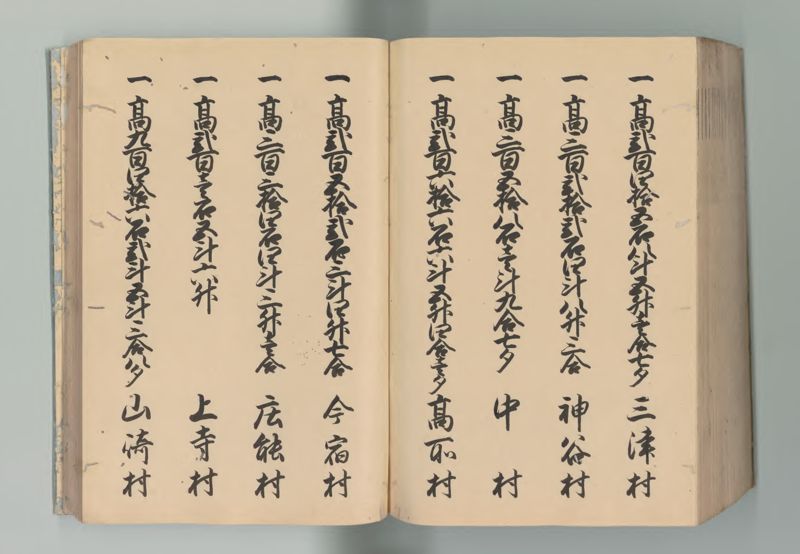 一 高弐百四拾五石八斗五升壱合七夕 三津村
一 高三百弐拾弐石四斗八升三合 神谷村
一 高三百五拾八石壱斗九合七夕 中村
一 高弐百六拾六石六斗五升四合壱夕 高取村
一 高弐百五拾弐石三斗四升七合 今宿村
一 高三百三拾四石四斗三升壱合 広能村
一 高弐百壱石五斗六升 上寺村
一 高九百四拾六石弐斗五升三合八夕 山崎村